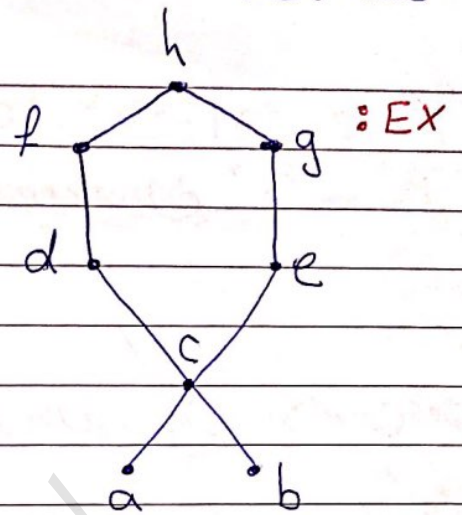 h
f
g
: EX
d
e
c
a
b